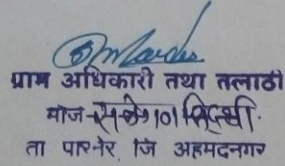 ग्राम अधिकारी तथा तलाठी
मोज
ता पारनेर, जि अहमदनगर